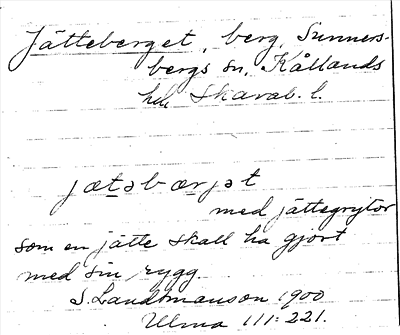 Jätteberget, berg, Sunners-
bergs sn, Kållands
hd, Skarab. l.
jætəbærjət
med jättegrytor
som en jätte skall ha gjort
med sin rygg.
S. Landtmanson 1900
Ulma 111:221.